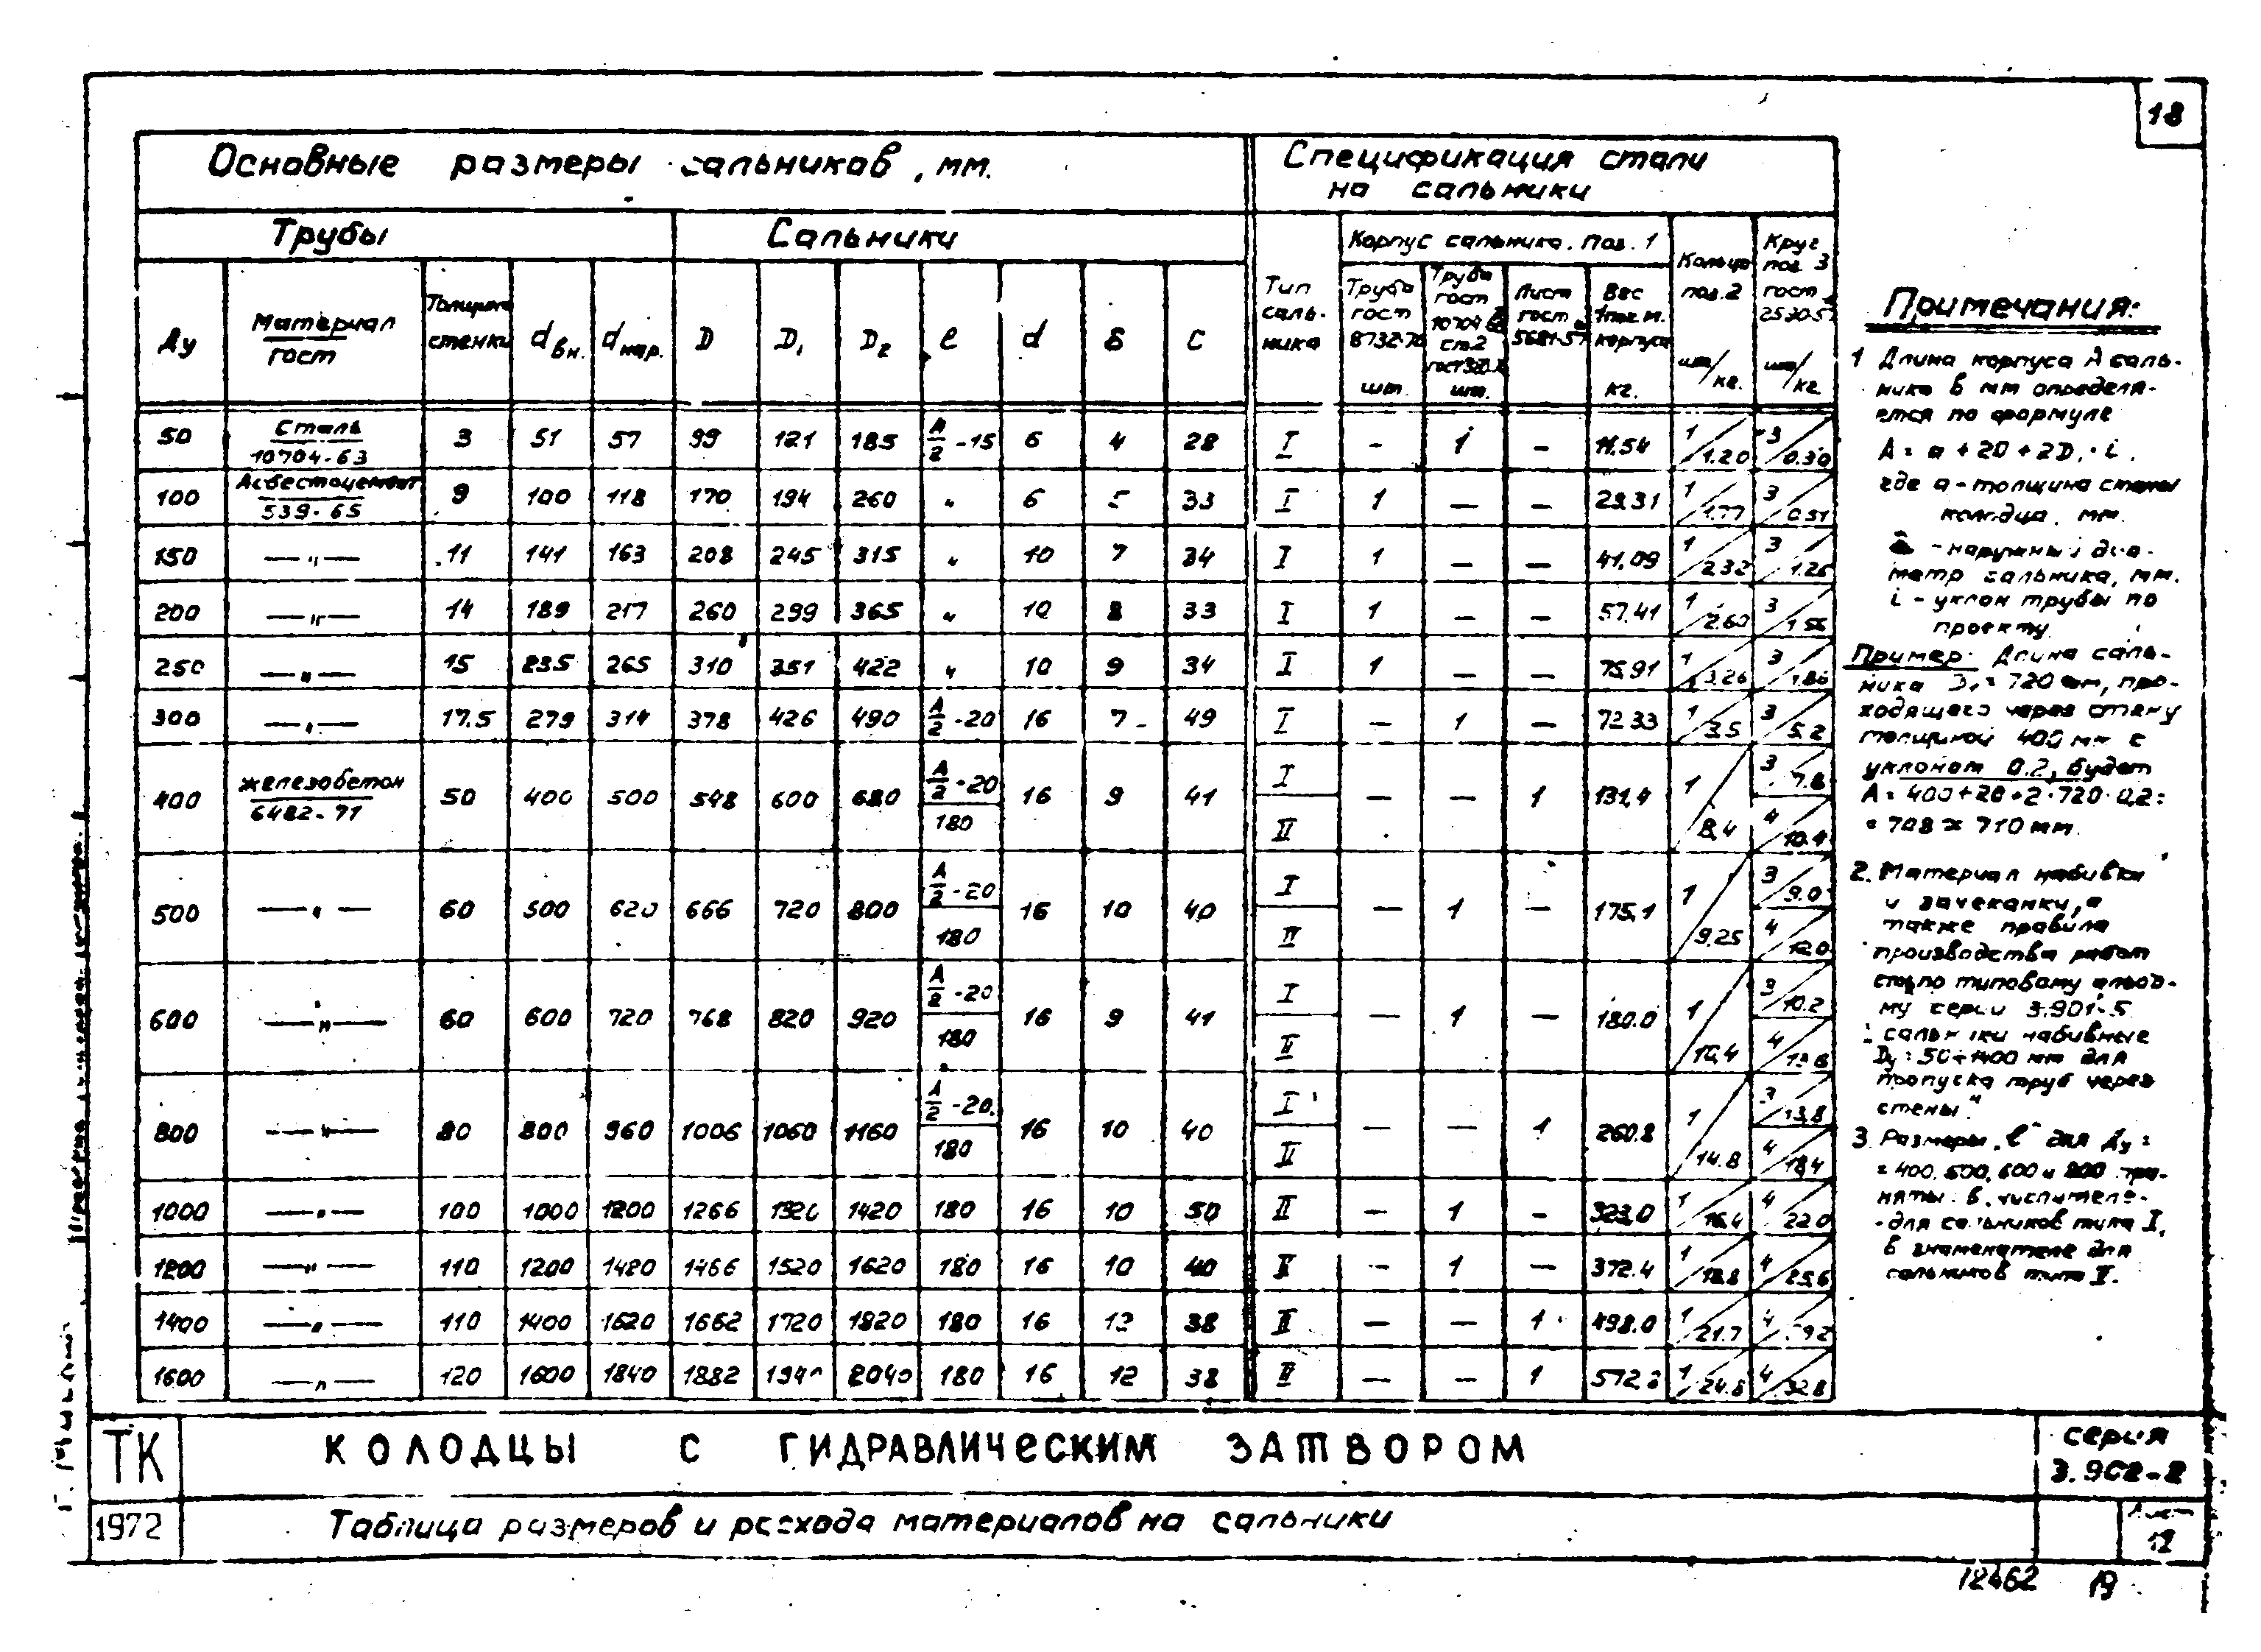 18
Основные размеры сальников, мм.
Спецификация стали
на сальники
Трубы
Сальники
Тип
саль-
ника
Корпус сальника. поз. 1
Кольцо
поз. 2
шт/кг.
Круг
поз 3
гост
2590-57
шт/кг.
Ду
Материал
гост
Толщина
стенки
dвн.
dнар.
D
D1
D2
ℓ
d
δ
C
Труба
гост
8732-70
шт.
Труба
гост
10704-63
ст.2
шт.
Лист
гост
5681-57
Вес
1 пог м.
корпуса
кг.
50 Сталь 10704-63 3 51 57 99 121 185 A/2 -15 6 4 28 I - 1 - 11.54 1/1.20 3/0.30
100 Асбестоцемент 539-65 9 100 118 170 194 260 " 6 5 33 I 1 — — 23.31 1/1.77 3/0.51
150 —"— 11 141 163 208 245 315 " 10 7 34 I 1 — — 41.09 1/2.32 3/1.25
200 —"— 14 189 217 260 299 365 " 10 8 33 I 1 — — 57.41 1/2.60 3/1.56
250 —"— 15 235 265 310 351 422 " 10 9 34 I 1 — — 75.91 1/3.26 3/1.86
300 —"— 17.5 279 314 378 426 490 A/2 -20 16 7 49 I — 1 — 72.33 1/3.5 3/5.2
400 железобетон 6482-71 50 400 500 548 600 680 A/2 -20 180 16 9 41 I II — — 1 131,4 1/8,4 3/7.8 4/10.4
500 —"— 60 500 620 666 720 800 A/2 -20 180 16 10 40 I II — 1 — 175,1 1/9.25 3/9.0 4/12.0
600 —"— 60 600 720 768 820 920 A/2 -20 180 16 9 41 I II — 1 — 180.0 1/10,4 3/10.2 4/13.6
800 —"— 80 800 960 1006 1060 1160 A/2 -20. 180 16 10 40 I II — — 1 260.8 1/14.8 3/13.8 4/18,4
1000 —"— 100 1000 1200 1266 1320 1420 180 16 10 50 II — 1 - 323,0 1/16,4 4/22.0
1200 —"— 110 1200 1420 1466 1520 1620 180 16 10 40 II — 1 — 372.4 1/18.8 4/25.6
1400 —"— 110 1400 1620 1662 1720 1820 180 16 12 38 II — — 1 498.0 1/21.7
1600 —"— 120 1600 1840 1882 1940 2040 180 16 12 38 II — — 1 1/24.8 4/32.8
Примечания:
1 Длина корпуса A саль-
ника в мм определя-
ется по формуле
A = a + 20 + 2D1 · i,
где a - толщина стены
колодца, мм.
- наружный диа-
метр сальника, мм.
i - уклон трубы по
проекту
Пример: Длина саль-
ника D1 = 720 мм, про-
ходящего через стену
толщиной 400 мм с
уклоном 0.2, будет
A = 400 + 20 + 2·720·0,2 =
= 708 ≈ 710 мм.
2. Материал набивки
и зачеканки, а
также правила
производства работ
см. по типовому альбо-
му серии 3.901-5
"Сальники набивные
Ду = 50÷1400 мм для
пропуска труб через
стены."
3 Размеры „ℓ" для Ду =
= 400, 500, 600 и 800 при-
няты: в числителе -
- для сальников типа I,
в знаменателе для
сальников типа II.
ТК
1972
КОЛОДЦЫ С ГИДРАВЛИЧЕСКИМ ЗАТВОРОМ
Таблица размеров и расхода материалов на сальники
серия
3.902-2
Лист
12
12462 19